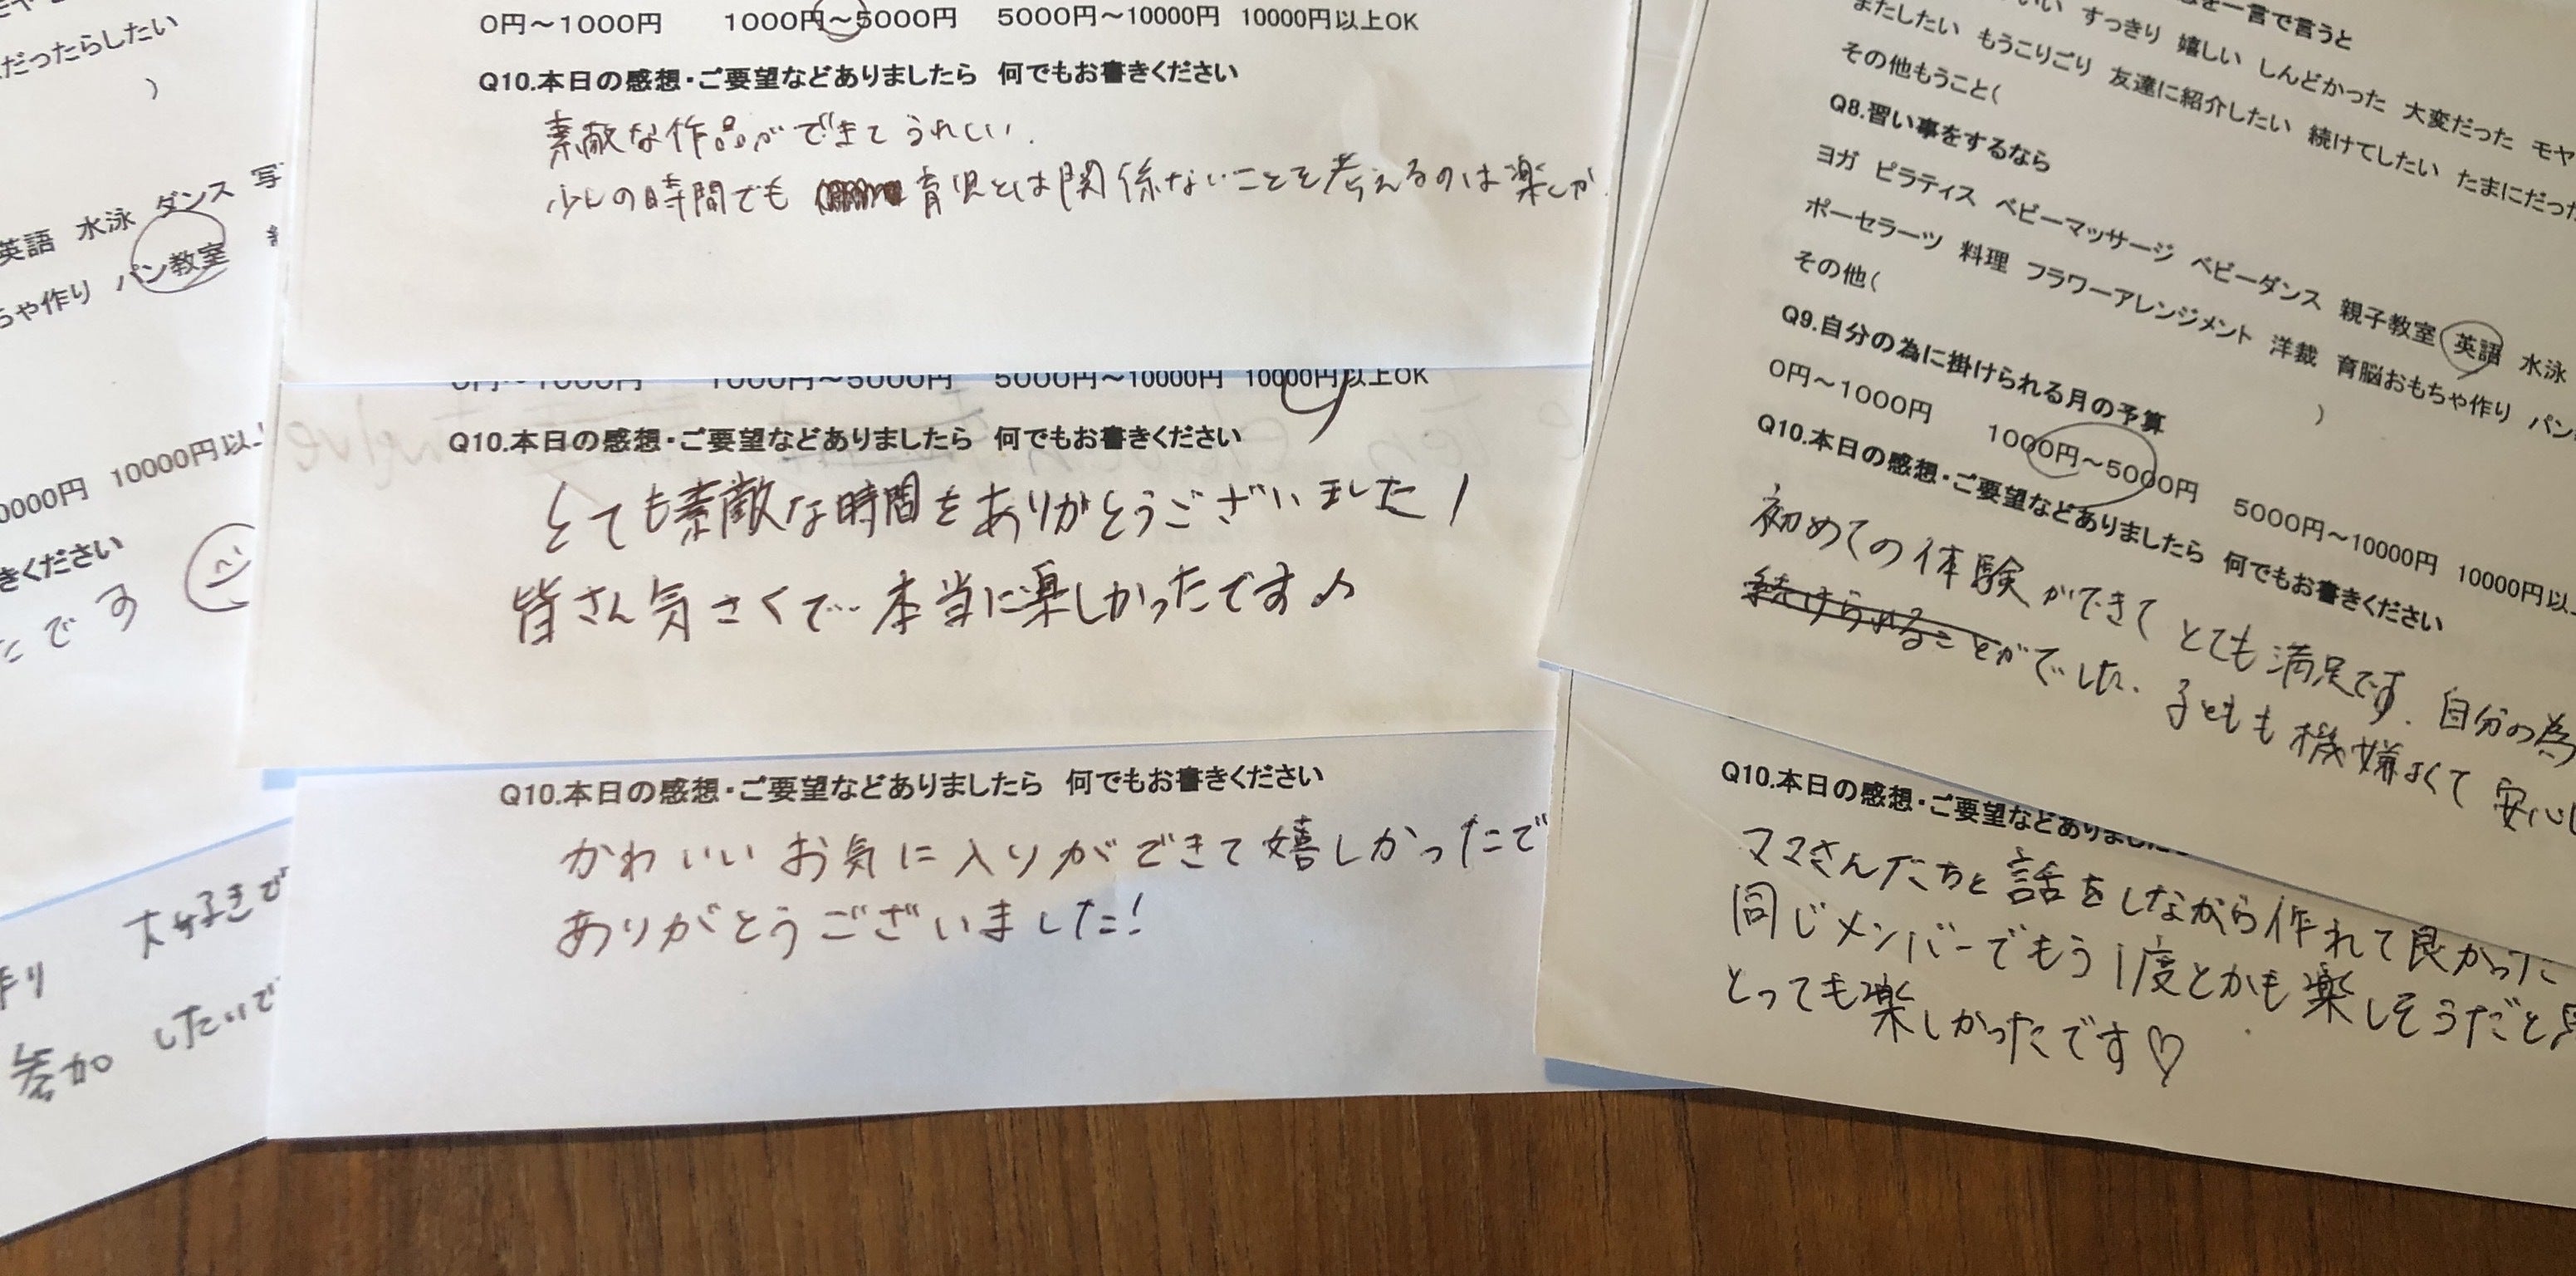 だったらしたい
)
英語 水泳 ダンス 写
ちゃ作り パン教室
0000円 10000円以上
きください
です
大好きで
作り
参加 したいで
0円～1000円 1000円～5000円 5000円～10000円 10000円以上OK
Q10.本日の感想・ご要望などありましたら 何でもお書きください
素敵な作品ができてうれしい.
少しの時間でも 育児とは関係ないことを考えるのは楽しか
0円～1000円 1000円～5000円 5000円～10000円 10000円以上OK
Q10.本日の感想・ご要望などありましたら 何でもお書きください
とても素敵な時間をありがとうございました!
皆さん気さくで… 本当に楽しかったです♪
Q10.本日の感想・ご要望などありましたら 何でもお書きください
かわいいお気に入りができて嬉しかったで
ありがとうございました!
を一言で言うと
いい すっきり 嬉しい しんどかった 大変だった モヤ
またしたい もうこりごり 友達に紹介したい 続けてしたい たまにだった
その他もうこと(
Q8.習い事をするなら
ヨガ ピラティス ベビーマッサージ ベビーダンス 親子教室 英語 水泳
ポーセラーツ 料理 フラワーアレンジメント 洋裁 育脳おもちゃ作り パン
その他( )
Q9.自分の為に掛けられる月の予算
0円～1000円 1000円～5000円 5000円～10000円 10000円以上
Q10.本日の感想・ご要望などありましたら 何でもお書きください
初めての体験ができて とても満足です. 自分の為
続けられることができました. 子どもも機嫌よくて 安心し
Q10.本日の感想・ご要望などありました
ママさんたちと話をしながら作れて良かった
同じメンバーでもう1度とかも楽しそうだと思
とっても楽しかったです♡